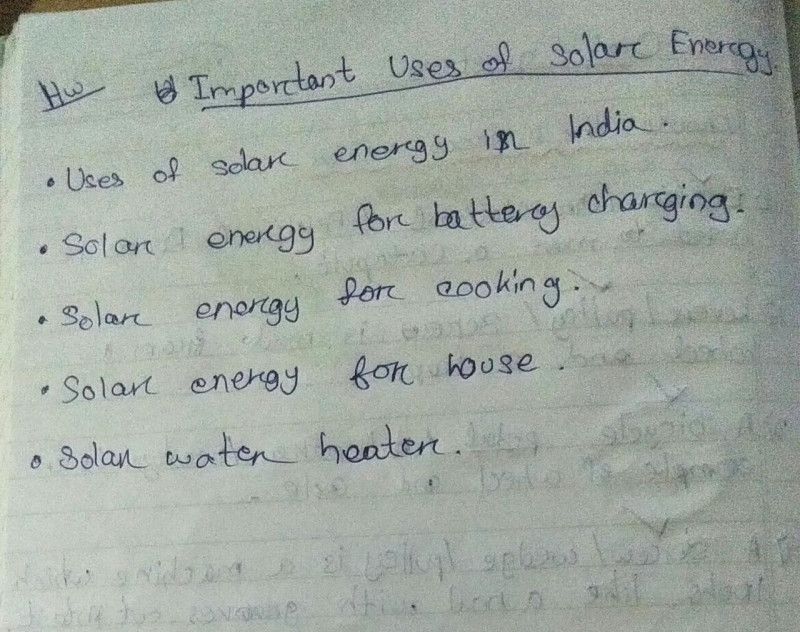 Hw Important Uses of Solar Energy
• Uses of solar energy in India.
• Solar energy for battery charging.
• Solar energy for cooking.
• Solar energy for house.
• Solar water heater.